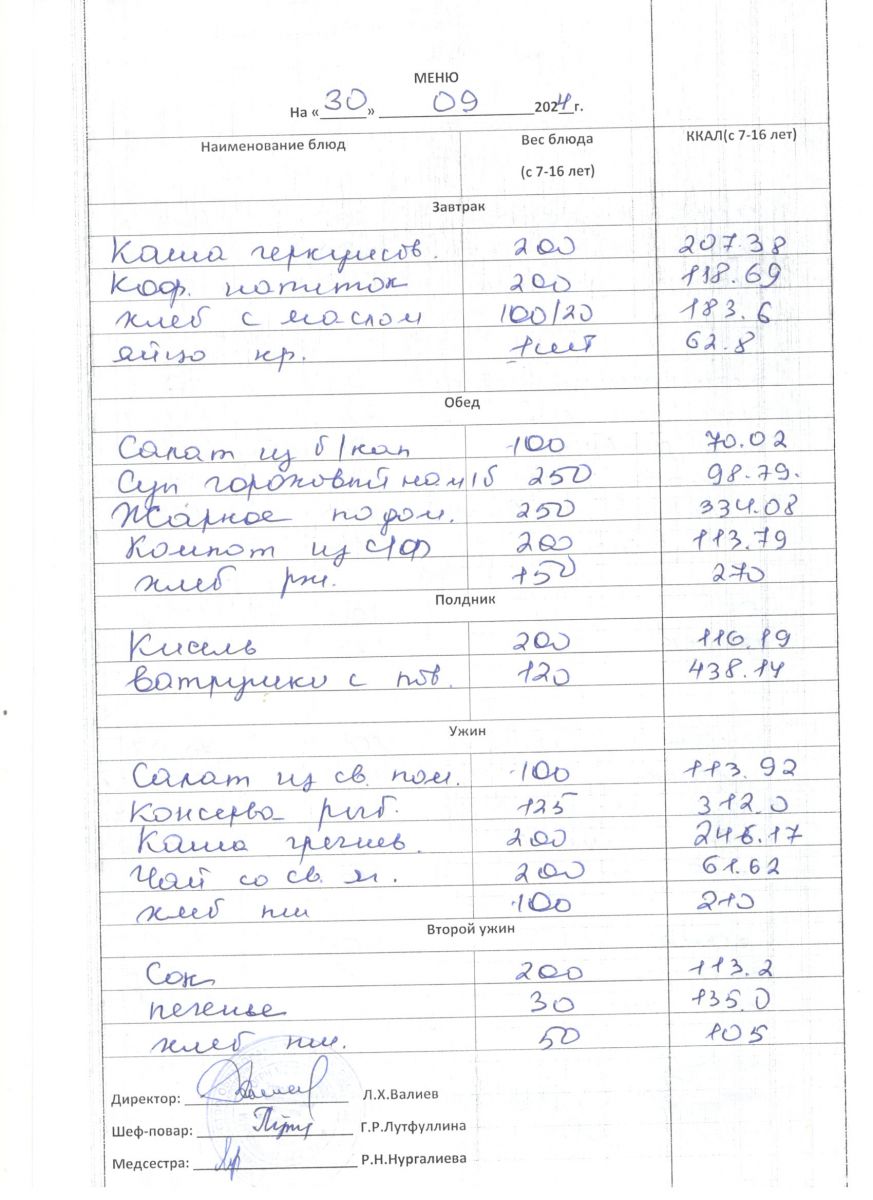 МЕНЮ
На «30» 09 2024 г.
Наименование блюд Вес блюда (с 7-16 лет) ККАЛ(с 7-16 лет)
Завтрак
Каша геркулесов. 200 207.38
Коф. напиток 200 118.69
хлеб с маслом 100/20 183.6
яйцо кр. 1шт 62.8
Обед
Салат из б/кап 100 70.02
Суп гороховый на м/б 250 98.79.
Жаркое по дом. 250 334.08
Компот из с/ф 200 113.79
хлеб рж. 150 270
Полдник
Кисель 200 116.19
Ватрушки с пов. 120 438.14
Ужин
Салат из св. пом. 100 113.92
Консерва рыб. 125 312.0
Каша гречнев. 200 246.17
Чай со св. м. 200 61.62
хлеб пш 100 210
Второй ужин
Сок 200 113.2
печенье 30 135.0
хлеб пш. 50 105
Директор: Л.Х.Валиев
Шеф-повар: Г.Р.Лутфуллина
Медсестра: Р.Н.Нургалиева